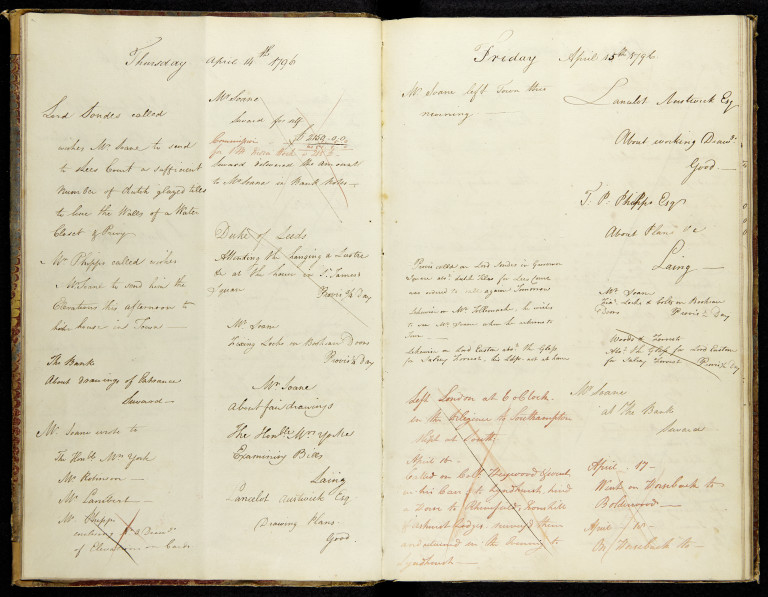 Thursday April 14th 1796
Lord Sondes called
wishes Mr Soane to send
to Lees Court a sufficient
number of dutch glazed tiles
to line the Walls of a Water
Closet & Privy
Mr Phipps called wishes
Mr Soane to send him the
Elevations this afternoon to
his house in Town
The Bank
About drawings of Entrance
Seward
Mr Soane wrote to
The Honble Mrs York
Mr Robinson
Mr Lambert
Mr Phipps
of Elevations on Cards
Mr Soane
Seward for self
£ 2159..0..0
Seward delivered the amount
to Mr Soane in Bank Notes
Duke of Leeds
Attending the hanging a Lustre
&c at the house in St James's
Square Provis ¼ Day
Mr Soane
Fixing Locks on Bookcase Doors
Provis ¾ Day
Mr Soane
About fair drawings
The Honble Mrs Yorke
Examining Bills
Laing
Lancelot Austwick Esq
Drawing Plans
Good.
Friday April 15th 1796
Mr Soane left Town this
morning
Provis called on Lord Sondes in Grosvenor
Square abt Dutch Tiles for Lees Court
was ordered to call again Tomorrow
Likewise on Mr
to see Mr Soane when he returns to
Town
Likewise on Lord Euston abt the Glass
for Salcey Forrest, his Ldsp not at home
Left London at 6 oClock
in the Diligence to Southampton
Slept at
April 16
Called on Coll Heywood & went
in his Carr to Lyndhurst hired
a Horse to Rhinefield, Ironshill
Parkhurst Lodges. surveyd them
and returned in the Evening to
Lyndhurst
Lancelot Austwick Esq
About working Drawgs
Good
T. P. Phipps Esq
About Plans &c
Laing
Mr Soane
Fixg Locks & bolts on Bookcase
Doors Provis ½ Day
Woods & Forrest
Abt the Glass for Lord Euston
for Salcey Forrest Provis ½ Day
Mr Soane
at The Bank
Seward
April 17
Went on Horseback to
Bolderwood
April 18
On Horseback to